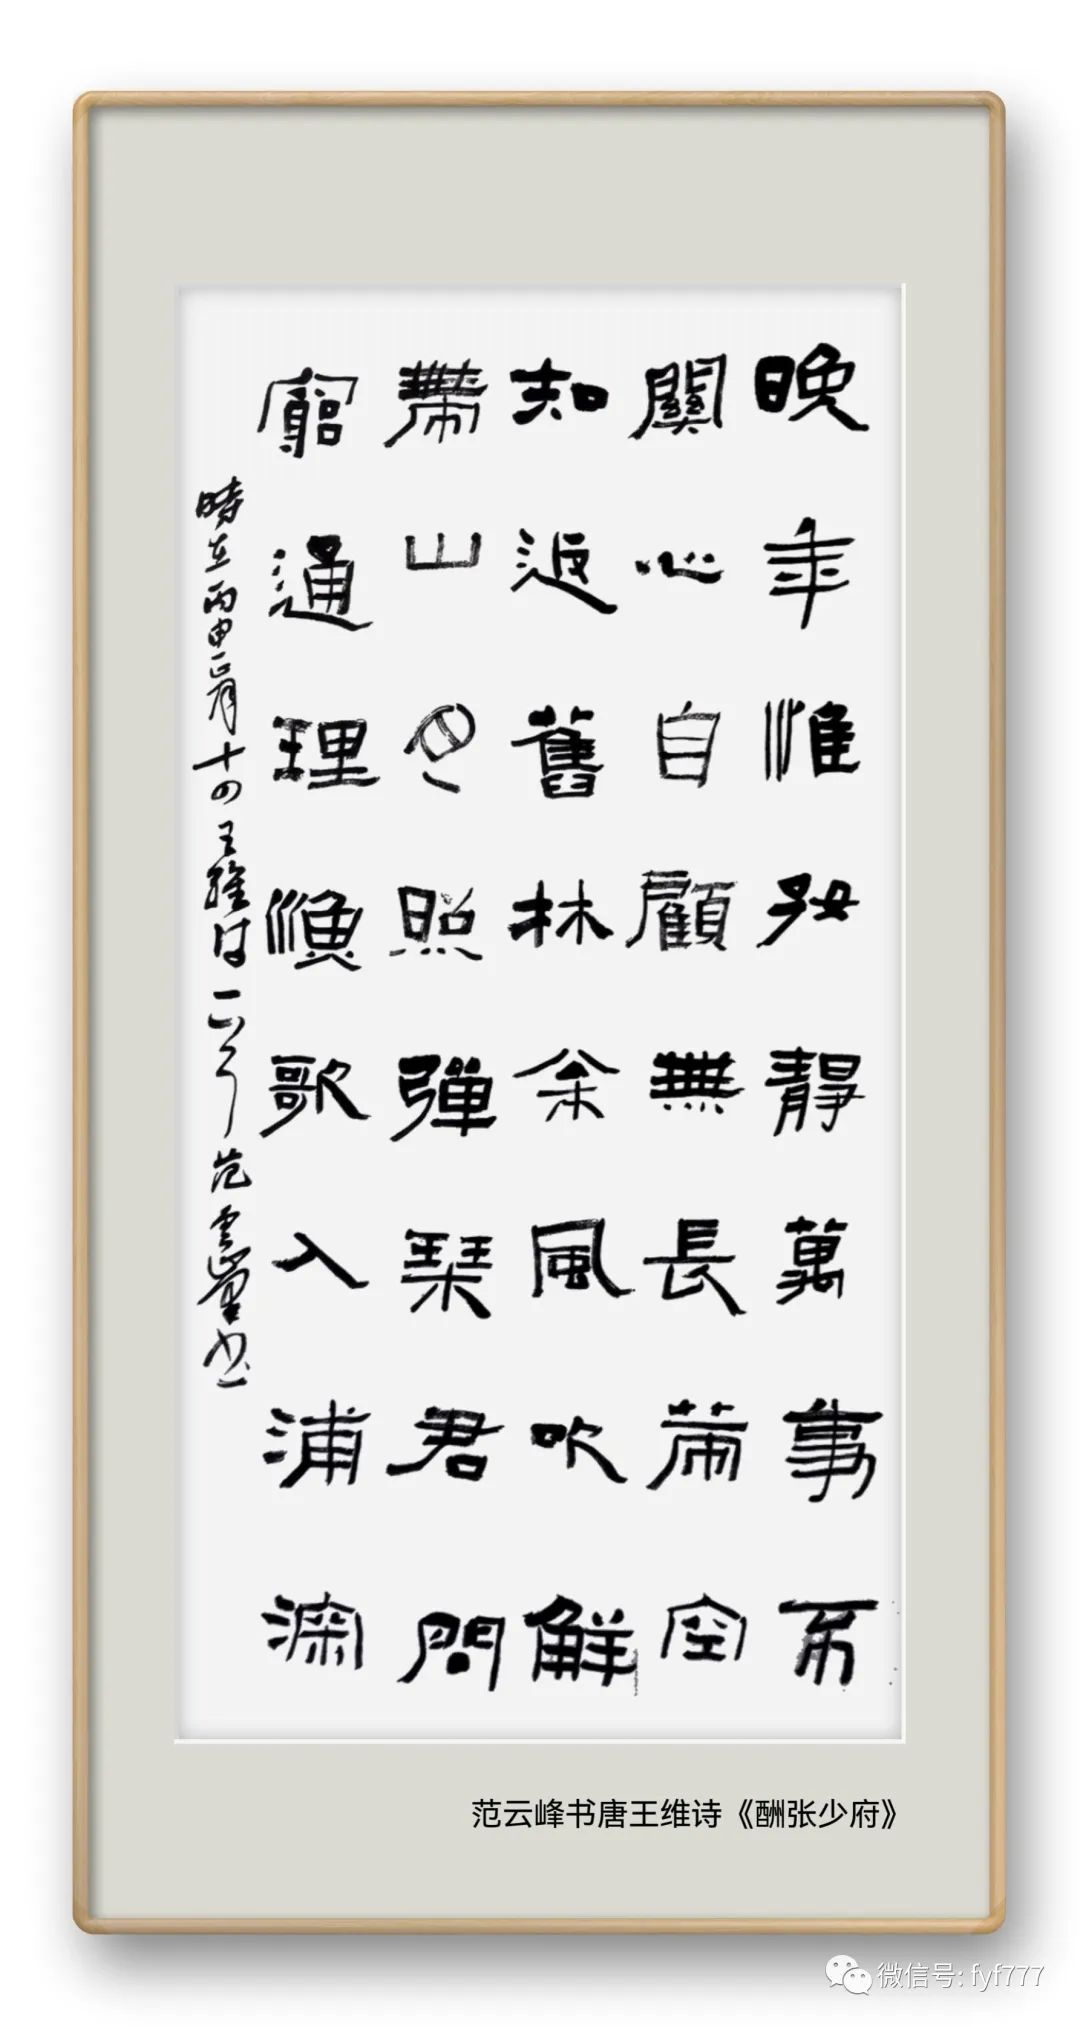 晚年惟好靜萬事不
關心自顧無長策空
知返舊林枀風吹解
帶山月照彈琴君問
窮通理漁歌入浦深
時在丙申正月十四王維詩一首范雲峯书
范云峰书唐王维诗《酬张少府》
微信号: fyf777